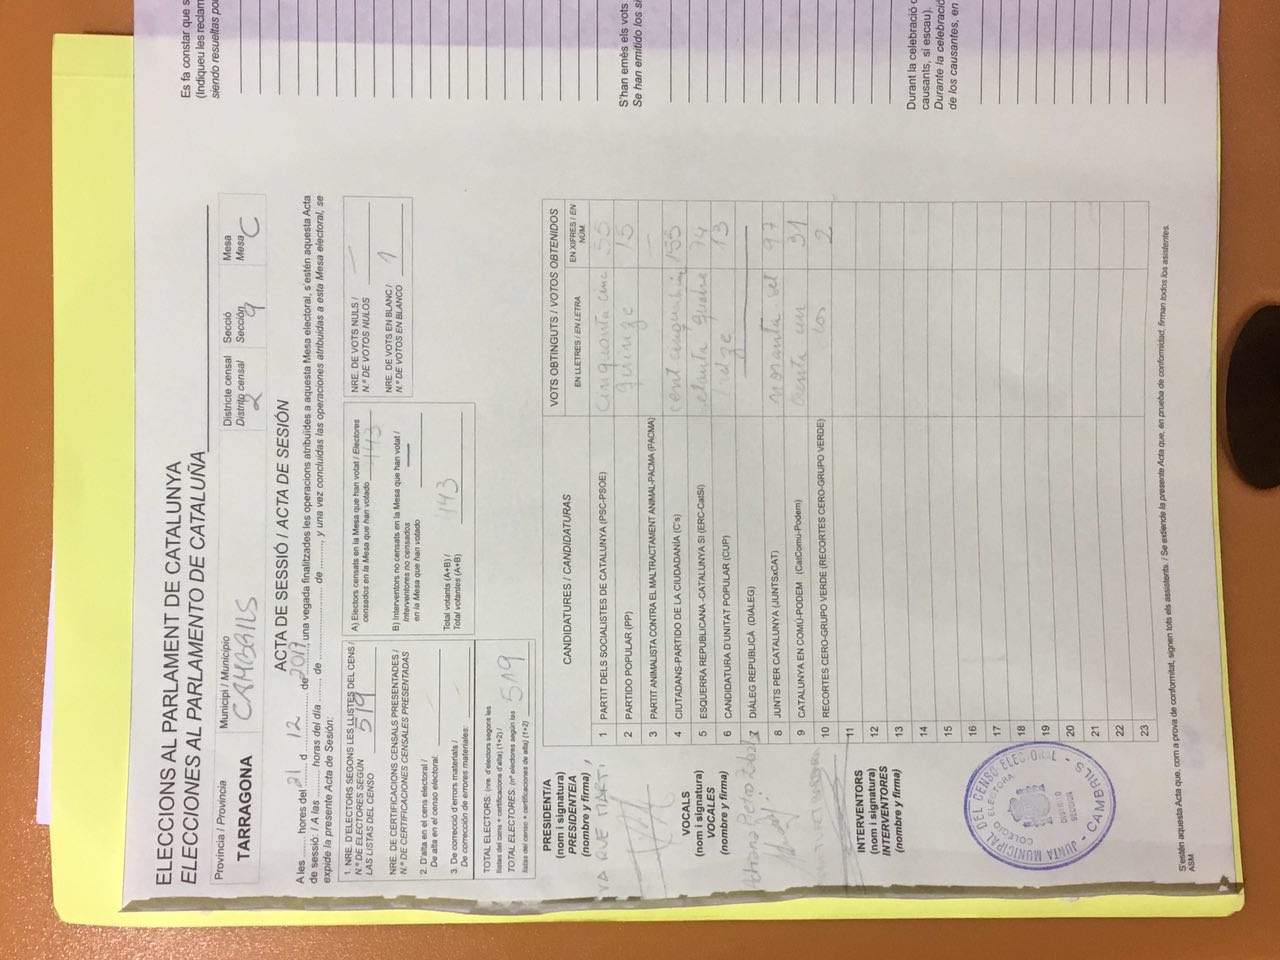 ELECCIONS AL PARLAMENT DE CATALUNYA
ELECCIONES AL PARLAMENTO DE CATALUÑA
Província / Provincia
TARRAGONA
Municipi / Municipio
CAMBRILS
Districte censal
Distrito censal
2
Secció
Sección
9
Mesa
Mesa
C
ACTA DE SESSIÓ / ACTA DE SESIÓN
A les ........ hores del 21 d 12 de 2017, una vegada finalitzades les operacions atribuïdes a aquesta Mesa electoral, s'estén aquesta Acta
de sessió: / A las ........ horas del día ........ de ........ de ........, y una vez concluidas las operaciones atribuidas a esta Mesa electoral, se
expide la presente Acta de Sesión:
1. NRE. D'ELECTORS SEGONS LES LLISTES DEL CENS /
N.º DE ELECTORES SEGÚN
LAS LISTAS DEL CENSO
519
NRE. DE CERTIFICACIONS CENSALS PRESENTADES /
N.º DE CERTIFICACIONES CENSALES PRESENTADAS
2. D'alta en el cens electoral /
De alta en el censo electoral:
3. De correcció d'errors materials /
De corrección de errores materiales:
TOTAL ELECTORS. (nre. d'electors segons les
llistes del cens + certificacions d'alta) (1+2) /
TOTAL ELECTORES. (nº electores según las
listas del censo + certificaciones de alta) (1+2)
519
A) Electors censats en la Mesa que han votat / Electores
censados en la Mesa que han votado
443
B) Interventors no censats en la Mesa que han votat /
Interventores no censados
en la Mesa que han votado
—
Total votants (A+B) /
Total votantes (A+B)
443
NRE. DE VOTS NULS /
N.º DE VOTOS NULOS
—
NRE. DE VOTS EN BLANC /
N.º DE VOTOS EN BLANCO
1
CANDIDATURES / CANDIDATURAS
VOTS OBTINGUTS / VOTOS OBTENIDOS
EN LLETRES / EN LETRA
EN XIFRES / EN NÚM.
1 PARTIT DELS SOCIALISTES DE CATALUNYA (PSC-PSOE) cinquanta cinc 55
2 PARTIDO POPULAR (PP) quinze 15
3 PARTIT ANIMALISTA CONTRA EL MALTRACTAMENT ANIMAL-PACMA (PACMA) —
4 CIUTADANS-PARTIDO DE LA CIUDADANÍA (C's) cent cinquanta 155
5 ESQUERRA REPUBLICANA -CATALUNYA SÍ (ERC-CatSí) setanta quatre 74
6 CANDIDATURA D'UNITAT POPULAR (CUP) tretze 13
7 DIÀLEG REPUBLICÀ (DIÀLEG)
8 JUNTS PER CATALUNYA (JUNTSxCAT) noranta set 97
9 CATALUNYA EN COMÚ-PODEM (CatComú-Podem) 31
10 RECORTES CERO-GRUPO VERDE (RECORTES CERO-GRUPO VERDE) dos 2
11
12
13
14
15
16
17
18
19
20
21
22
23
PRESIDENT/A
(nom i signatura)
PRESIDENTE/A
(nombre y firma)
MARTÍ
VOCALS
(nom i signatura)
VOCALES
(nombre y firma)
INTERVENTORS
(nom i signatura)
INTERVENTORES
(nombre y firma)
JUNTA MUNICIPAL DEL CENSO ELECTORAL - CAMBRILS -
COLEGIO ELECTORAL
DISTRITO
SECCION
S'estén aquesta Acta que, com a prova de conformitat, signen tots els assistents. / Se extiende la presente Acta que, en prueba de conformidad, firman todos los asistentes.
ASM
Es fa constar que s
(Indiqueu les reclam
siendo resueltas po
S'han emès els vots
Se han emitido los s
Durant la celebració d
causants, si escau).
Durante la celebració
de los causantes, en